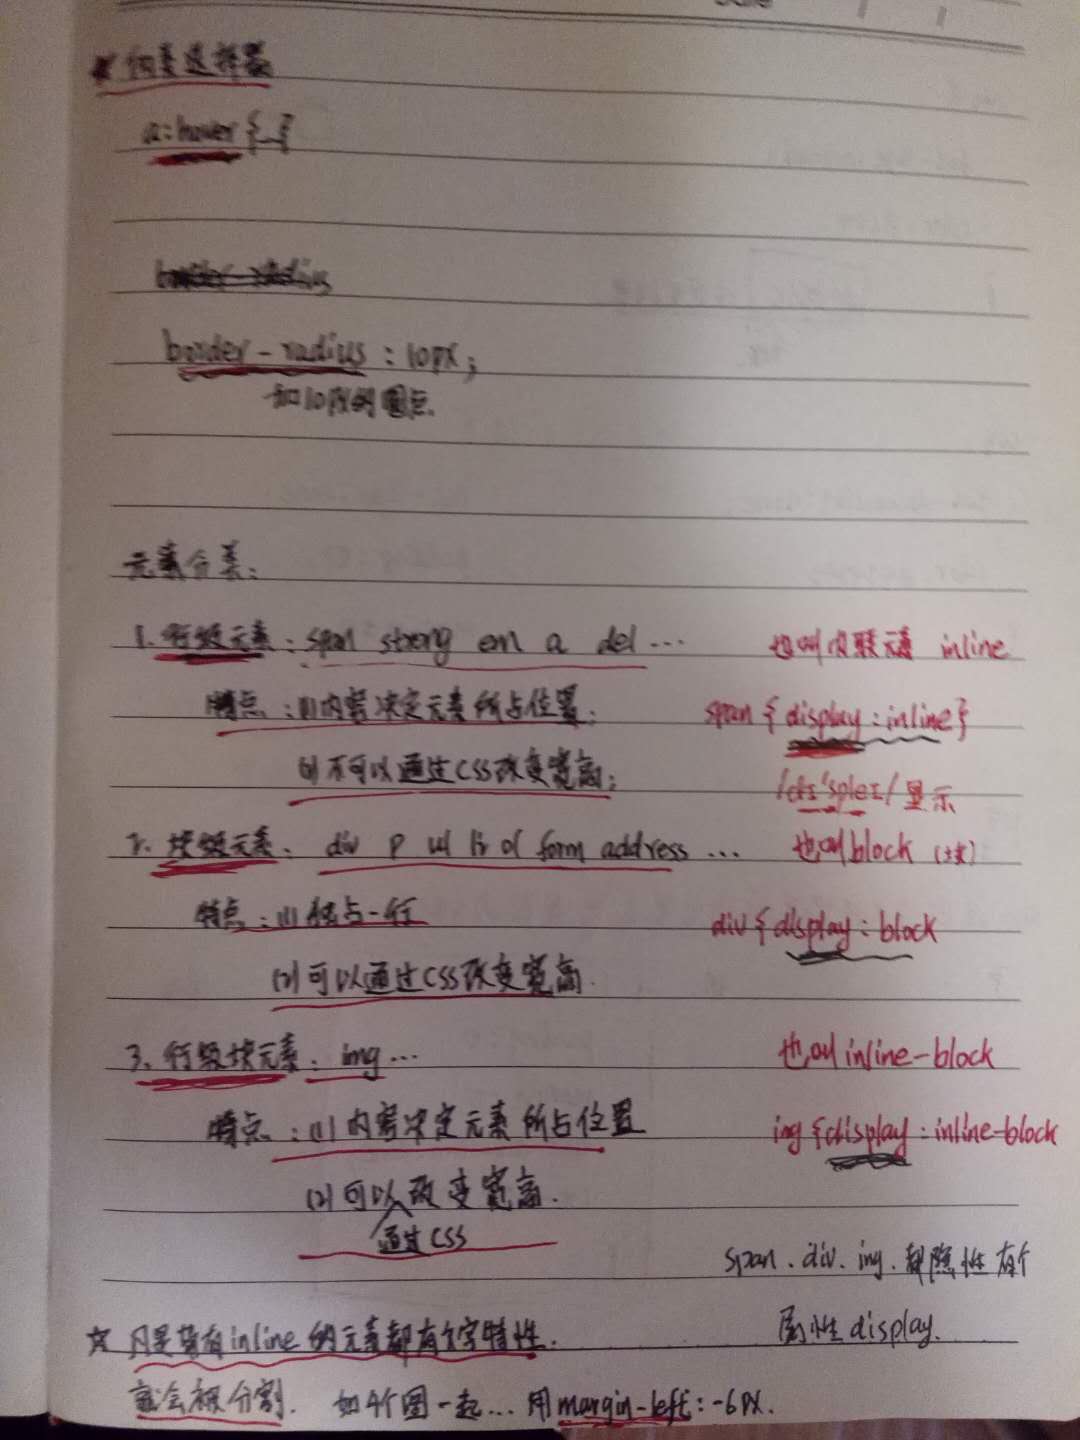 Date / /
* 伪类选择器
a:hover {…}
border-radius
border-radius : 10px;
加10px的圆点.
元素分类:
1. 行级元素 : span strong em a del … 也叫内联元素 inline
特点 : (1) 内容决定元素所占位置; span { display : inline}
(2) 不可以通过CSS改变宽高; /dɪ'spleɪ/ 显示
2. 块级元素 : div p ul li ol form address … 也叫block (块)
特点 : (1) 独占一行 div { display : block
(2) 可以通过CSS改变宽高.
3. 行级块元素 : img … 也叫 inline-block
特点 : (1) 内容决定元素所占位置 img {display : inline-block
(2) 可以改变宽高.
通过CSS
span . div . img . 都隐性有个
☆ 凡是带有inline的元素都有文字特性. 属性display.
就会被分割. 如4个图一起… 用margin-left : -6px.